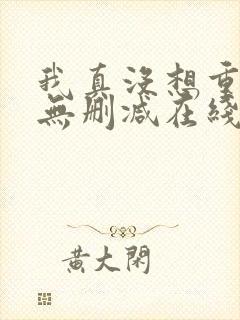 我真沒想重
無刪減在綫
黃大閑